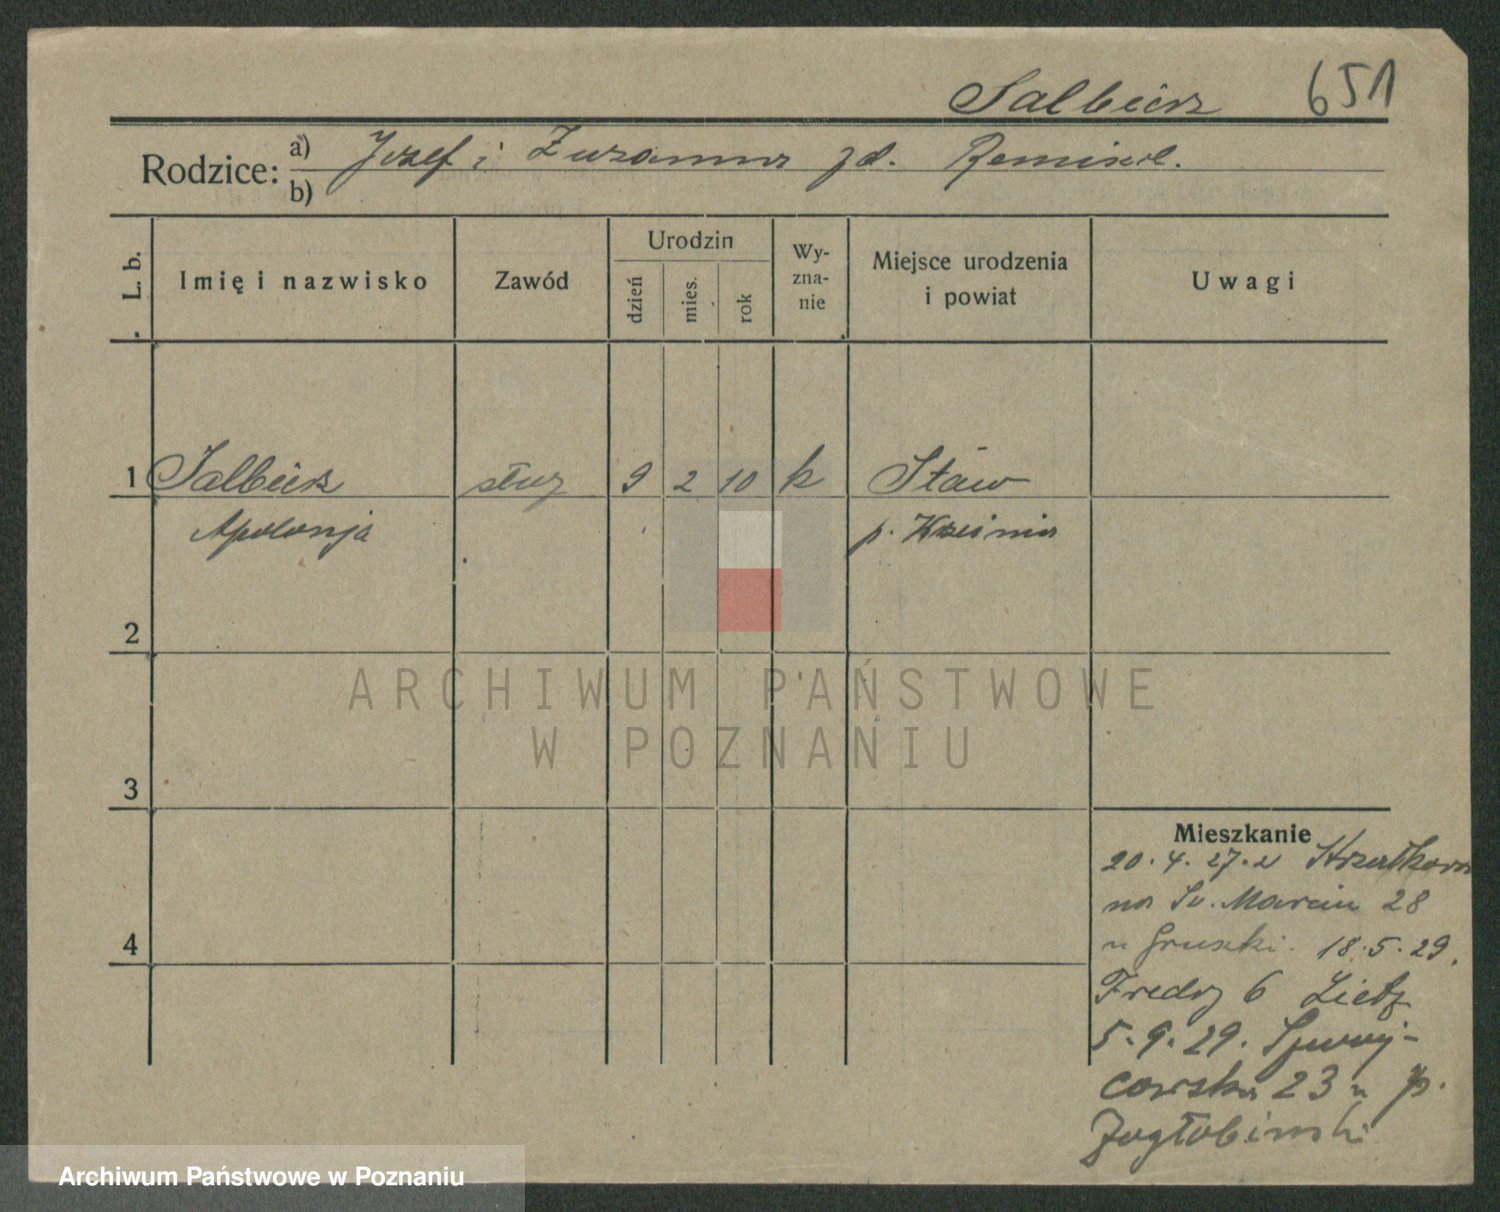 Salbierz 651
Rodzice: a) Józef i Zuzanna zd.
b)
L. b.
Imię i nazwisko
Zawód
Urodzin
dzień
mies.
rok
Wy-
zna-
nie
Miejsce urodzenia
i powiat
Uwagi
1 Salbierz służ 9 2 10 k Staw
Apolonja p. Września
2
3
4
Mieszkanie
20.4.27.
na Św. Marcin 28
u Gruszki. 18.5.29.
Fredry 6 Lietz
5.9.29.
23 u p.
Zagłobinski
ARCHIWUM PAŃSTWOWE
W POZNANIU
Archiwum Państwowe w Poznaniu